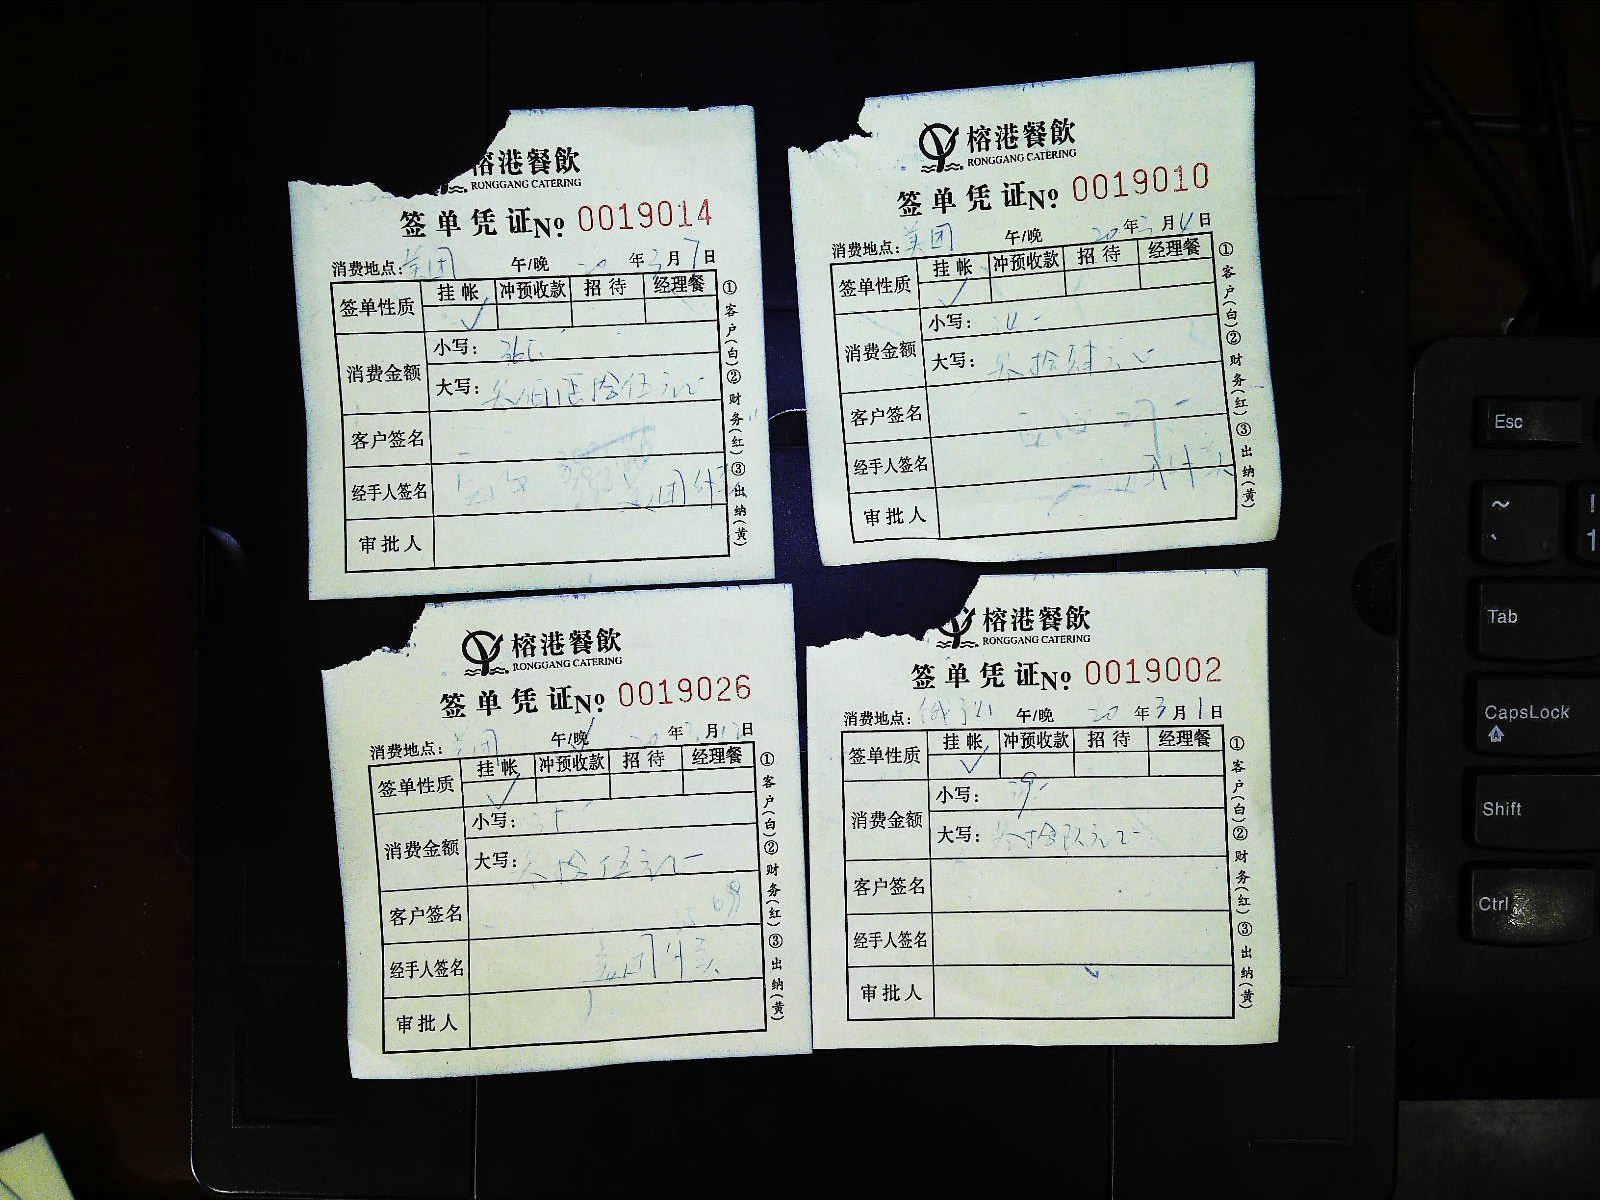 榕港餐飲
RONGGANG CATERING
签单凭证No. 0019014
消费地点: 美团 午/晚 20 年 3 月 7 日
签单性质 挂帐 冲预收款 招待 经理餐
✓
消费金额 小写:
大写: 拾伍元
客户签名
经手人签名 美团外卖
审批人
①客户(白)②财务(红)③出纳(黄)
榕港餐飲
RONGGANG CATERING
签单凭证No. 0019010
消费地点: 美团 午/晚 20 年 3 月 4 日
签单性质 挂帐 冲预收款 招待 经理餐
✓
消费金额 小写:
大写: 拾肆元
客户签名
经手人签名 外卖
审批人
①客户(白)②财务(红)③出纳(黄)
榕港餐飲
RONGGANG CATERING
签单凭证No. 0019026
消费地点: 美团 午/晚 20 年 3 月 12 日
签单性质 挂帐 冲预收款 招待 经理餐
✓
消费金额 小写: 35
大写: 拾伍元
客户签名
经手人签名 美团外卖
审批人
①客户(白)②财务(红)③出纳(黄)
榕港餐飲
RONGGANG CATERING
签单凭证No. 0019002
消费地点: 午/晚 20 年 3 月 1 日
签单性质 挂帐 冲预收款 招待 经理餐
✓
消费金额 小写:
大写: 拾 元
客户签名
经手人签名
审批人
①客户(白)②财务(红)③出纳(黄)
Esc
~
`
!
1
Tab
CapsLock
Shift
Ctrl